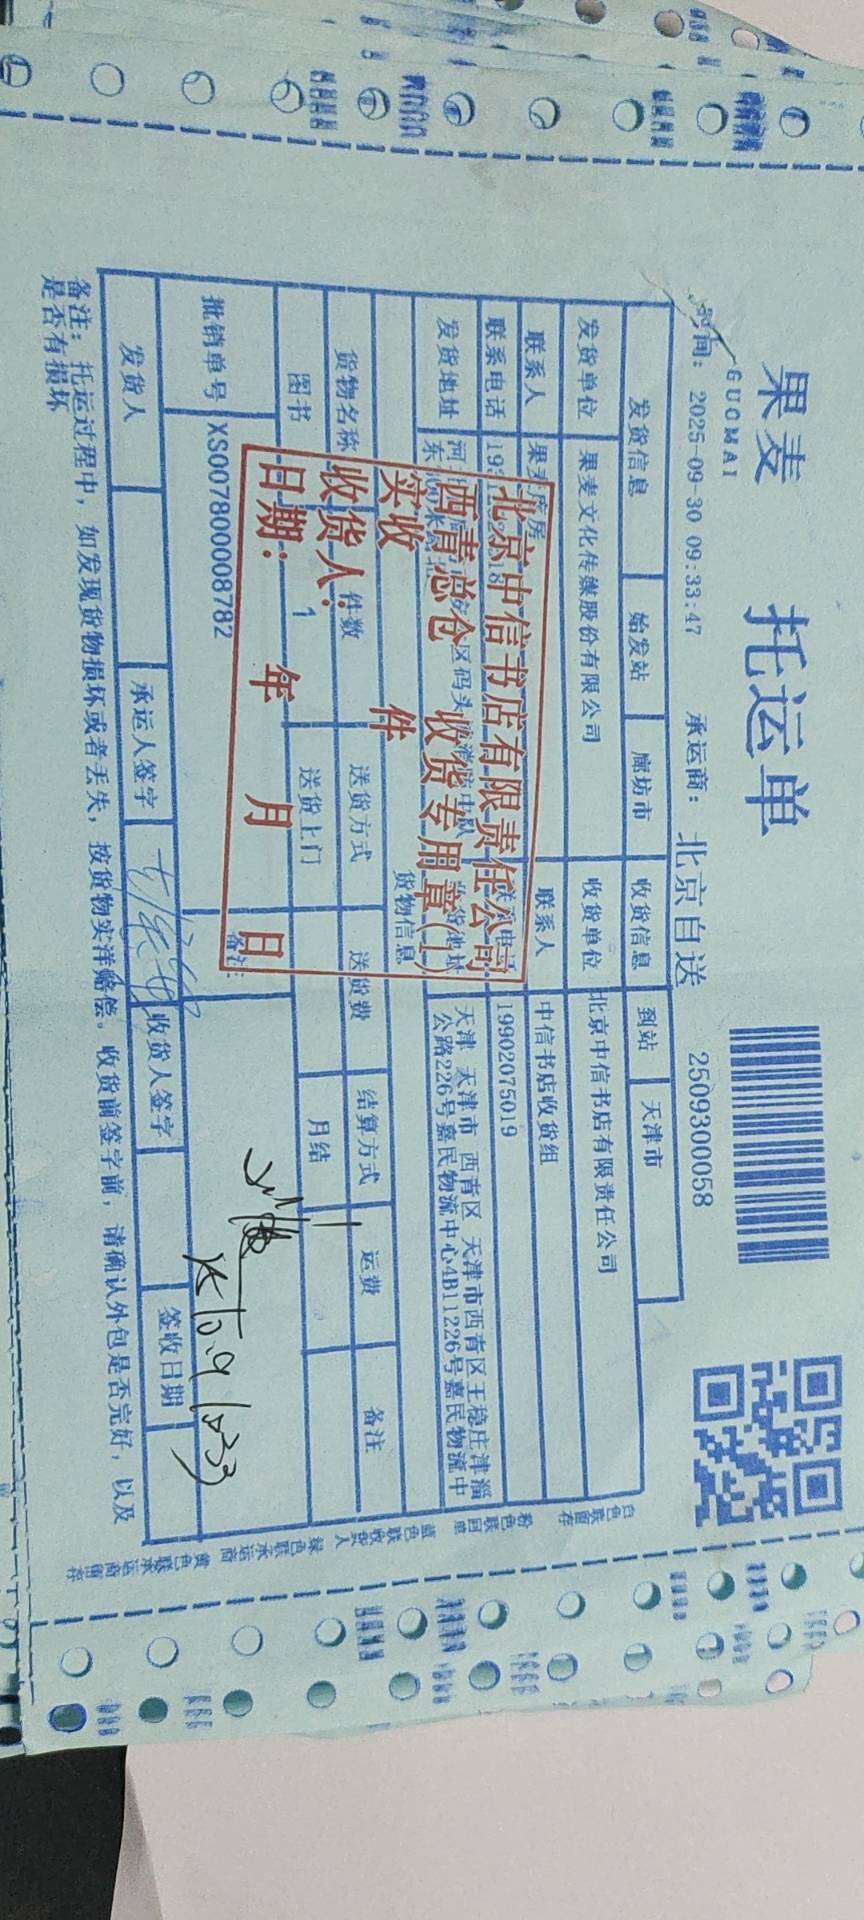 果麦
GUOMAI
托运单
时间: 2025-09-30 09:33:47 承运商: 北京自送 2509300058
发货信息 始发站 廊坊市 收货信息 到站 天津市
发货单位 果麦文化传媒股份有限公司 收货单位 北京中信书店有限责任公司
联系人 果麦库房 联系人 中信书店收货组
联系电话 联系电话 19902075019
发货地址 收货地址 天津 天津市 西青区 天津市西青区王稳庄津淄
公路226号嘉民物流中心4B11226号嘉民物流中
货物信息
货物名称 件数 送货方式 送货费 结算方式 运费 备注
图书 1 送货上门 月结
批销单号 XS007800008782 备注:
发货人 承运人签字 收货人签字 签收日期
备注: 托运过程中, 如发现货物损坏或者丢失, 按货物实洋赔偿。收货前签字前, 请确认外包是否完好, 以及
是否有损坏
北京中信书店有限责任公司
西青总仓 收货专用章(1)
实收 件
收货人:
日期: 年 月 日
白色联留存 粉色联回单 蓝色联收货人 绿色联承运商 黄色联承运商留存